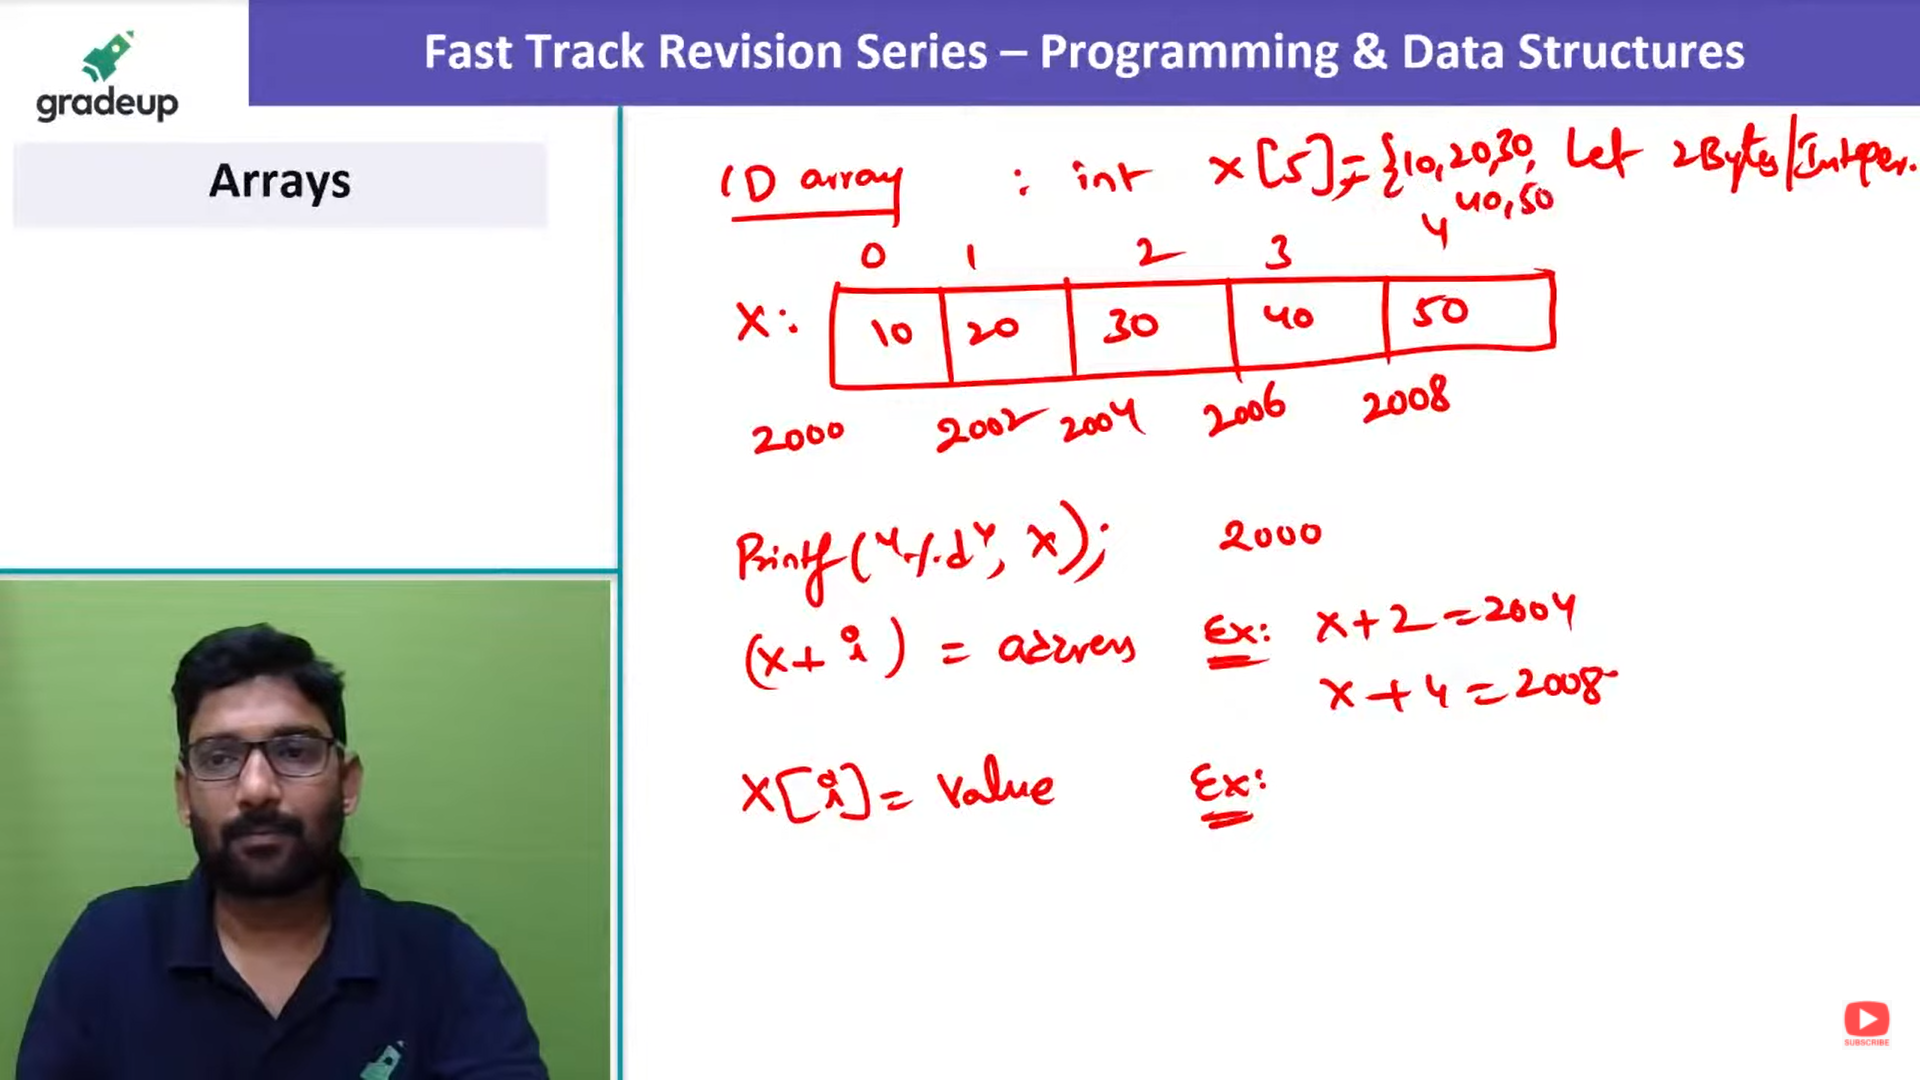 gradeup
Fast Track Revision Series – Programming & Data Structures
Arrays
1D array : int x[5]={10,20,30, Let 2Bytes/Integer.
40,50
0 1 2 3 4
x: 10 20 30 40 50
2000 2002 2004 2006 2008
Printf("%d", x); 2000
(x+i) = address Ex: x+2=2004
x+4=2008
x[i]= value Ex:
SUBSCRIBE